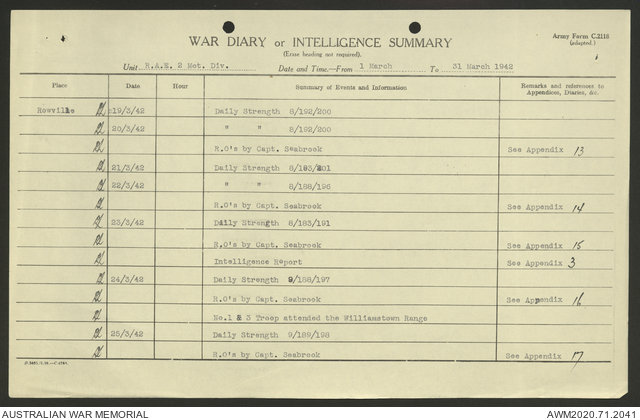 Army Form C.2118
(adapted.)
WAR DIARY or INTELLIGENCE SUMMARY
(Erase heading not required).
1
Unit R.A.E. 2 Mot. Div. Date and Time.—From 1 March To 31 March 1942
Place Date Hour Summary of Events and Information Remarks and references to Appendices, Diaries, &c.
Rowville 19/3/42 Daily Strength 8/192/200
20/3/42 " " 8/192/200
R.O's by Capt. Seabrook See Appendix 13
21/3/42 Daily Strength 8/193/201
22/3/42 " " 8/188/196
R.O's by Capt. Seabrook See Appendix 14
23/3/42 Daily Strength 8/183/191
R.O's by Capt. Seabrook See Appendix 15
Intelligence Report See Appendix 3
24/3/42 Daily Strength 9/188/197
R.O's by Capt. Seabrook See Appendix 16
No.1 & 3 Troop attended the Williamstown Range
25/3/42 Daily Strength 9/189/198
R.O's by Capt. Seabrook See Appendix 17
AUSTRALIAN WAR MEMORIAL AWM2020.71.2041